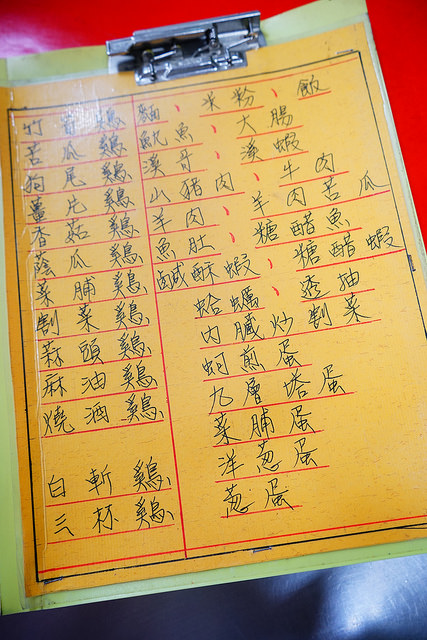 竹筍雞
苦瓜雞
狗尾雞
薑片雞
香菇雞
蔭瓜雞
菜脯雞
割菜雞
蒜頭雞
麻油雞
燒酒雞
白斬雞
三杯雞
麵、米粉、飯
魚、大腸
溪哥、溪蝦
山猪肉、牛肉
羊肉、羊肉苦瓜
魚肚、糖醋魚
鹹酥蝦、糖醋蝦
蛤蠣、透抽
內臟炒割菜
蚵煎蛋
九層塔蛋
菜脯蛋
洋葱蛋
葱蛋